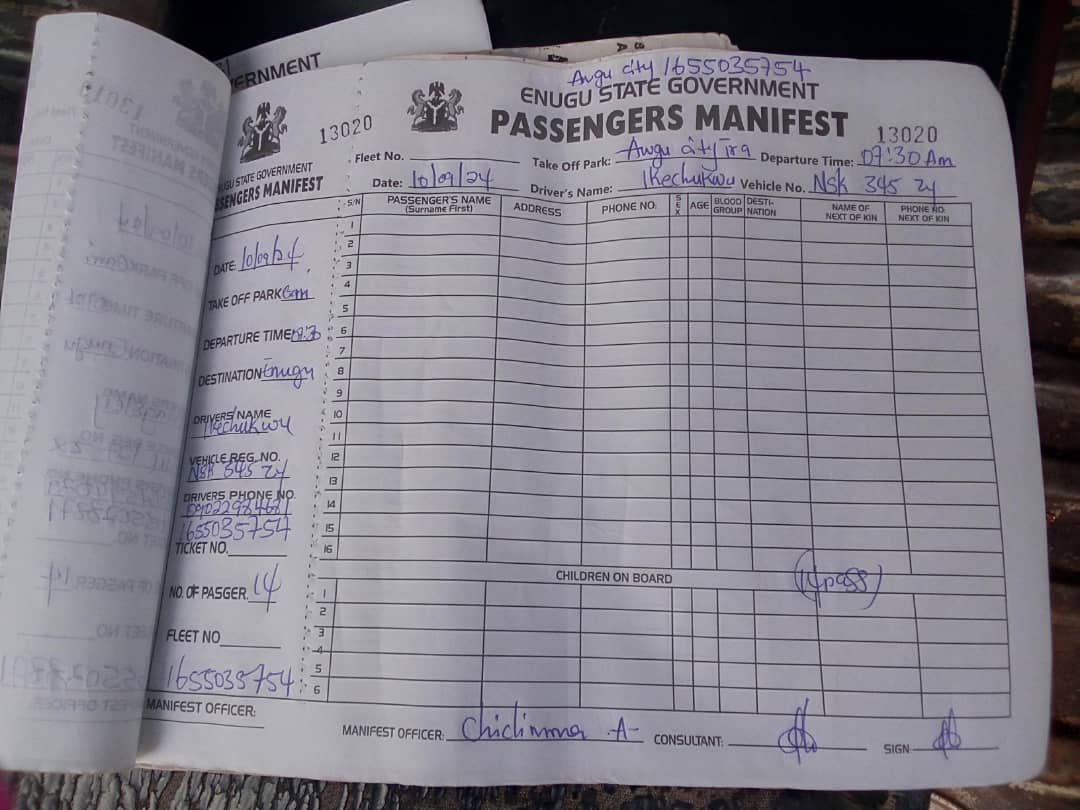 ERNMENT
Awgu city 1655035754
ENUGU STATE GOVERNMENT
PASSENGERS MANIFEST
13020
Fleet No.
Take Off Park: Awgu city
Departure Time: 07:30 Am
Date: 10/09/24
Driver's Name: Ikechukwu
Vehicle No. Nsk 345 zy
S/N
PASSENGER'S NAME
(Surname First)
ADDRESS
PHONE NO:
SEX
AGE
BLOOD GROUP
DESTI-NATION
NAME OF NEXT OF KIN
PHONE NO: NEXT OF KIN
1
2
3
4
5
6
7
8
9
10
11
12
13
14
15
16
CHILDREN ON BOARD
(14 pass)
1
2
3
4
5
6
MANIFEST OFFICER: Chidinma A
CONSULTANT:
SIGN
13020
NUGU STATE GOVERNMENT
SSENGERS MANIFEST
DATE: 10/09/24
TAKE OFF PARK
DEPARTURE TIME
DESTINATION Enugu
DRIVERS' NAME
Ikechukwu
VEHICLE REG. NO.
Nsk 345 zy
DRIVERS PHONE NO.
1655035754
TICKET NO.
NO. OF PASGER. 14
FLEET NO
1655035754
MANIFEST OFFICER: